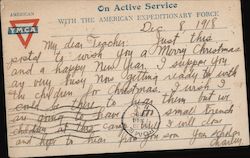 AMERICAN
Y.M.C.A.
On Active Service
WITH THE AMERICAN EXPEDITIONARY FORCE
Dec 1918
My dear Teacher: Just this
postal to wish you a Merry Christmas
and a happy New Year. I suppose you
are very busy now getting ready with
the children for Christmas. I wish I
could be there to help them but we
are going to have a small french
children at the camp. Well I will close
and hope to hear from you soon
Charles